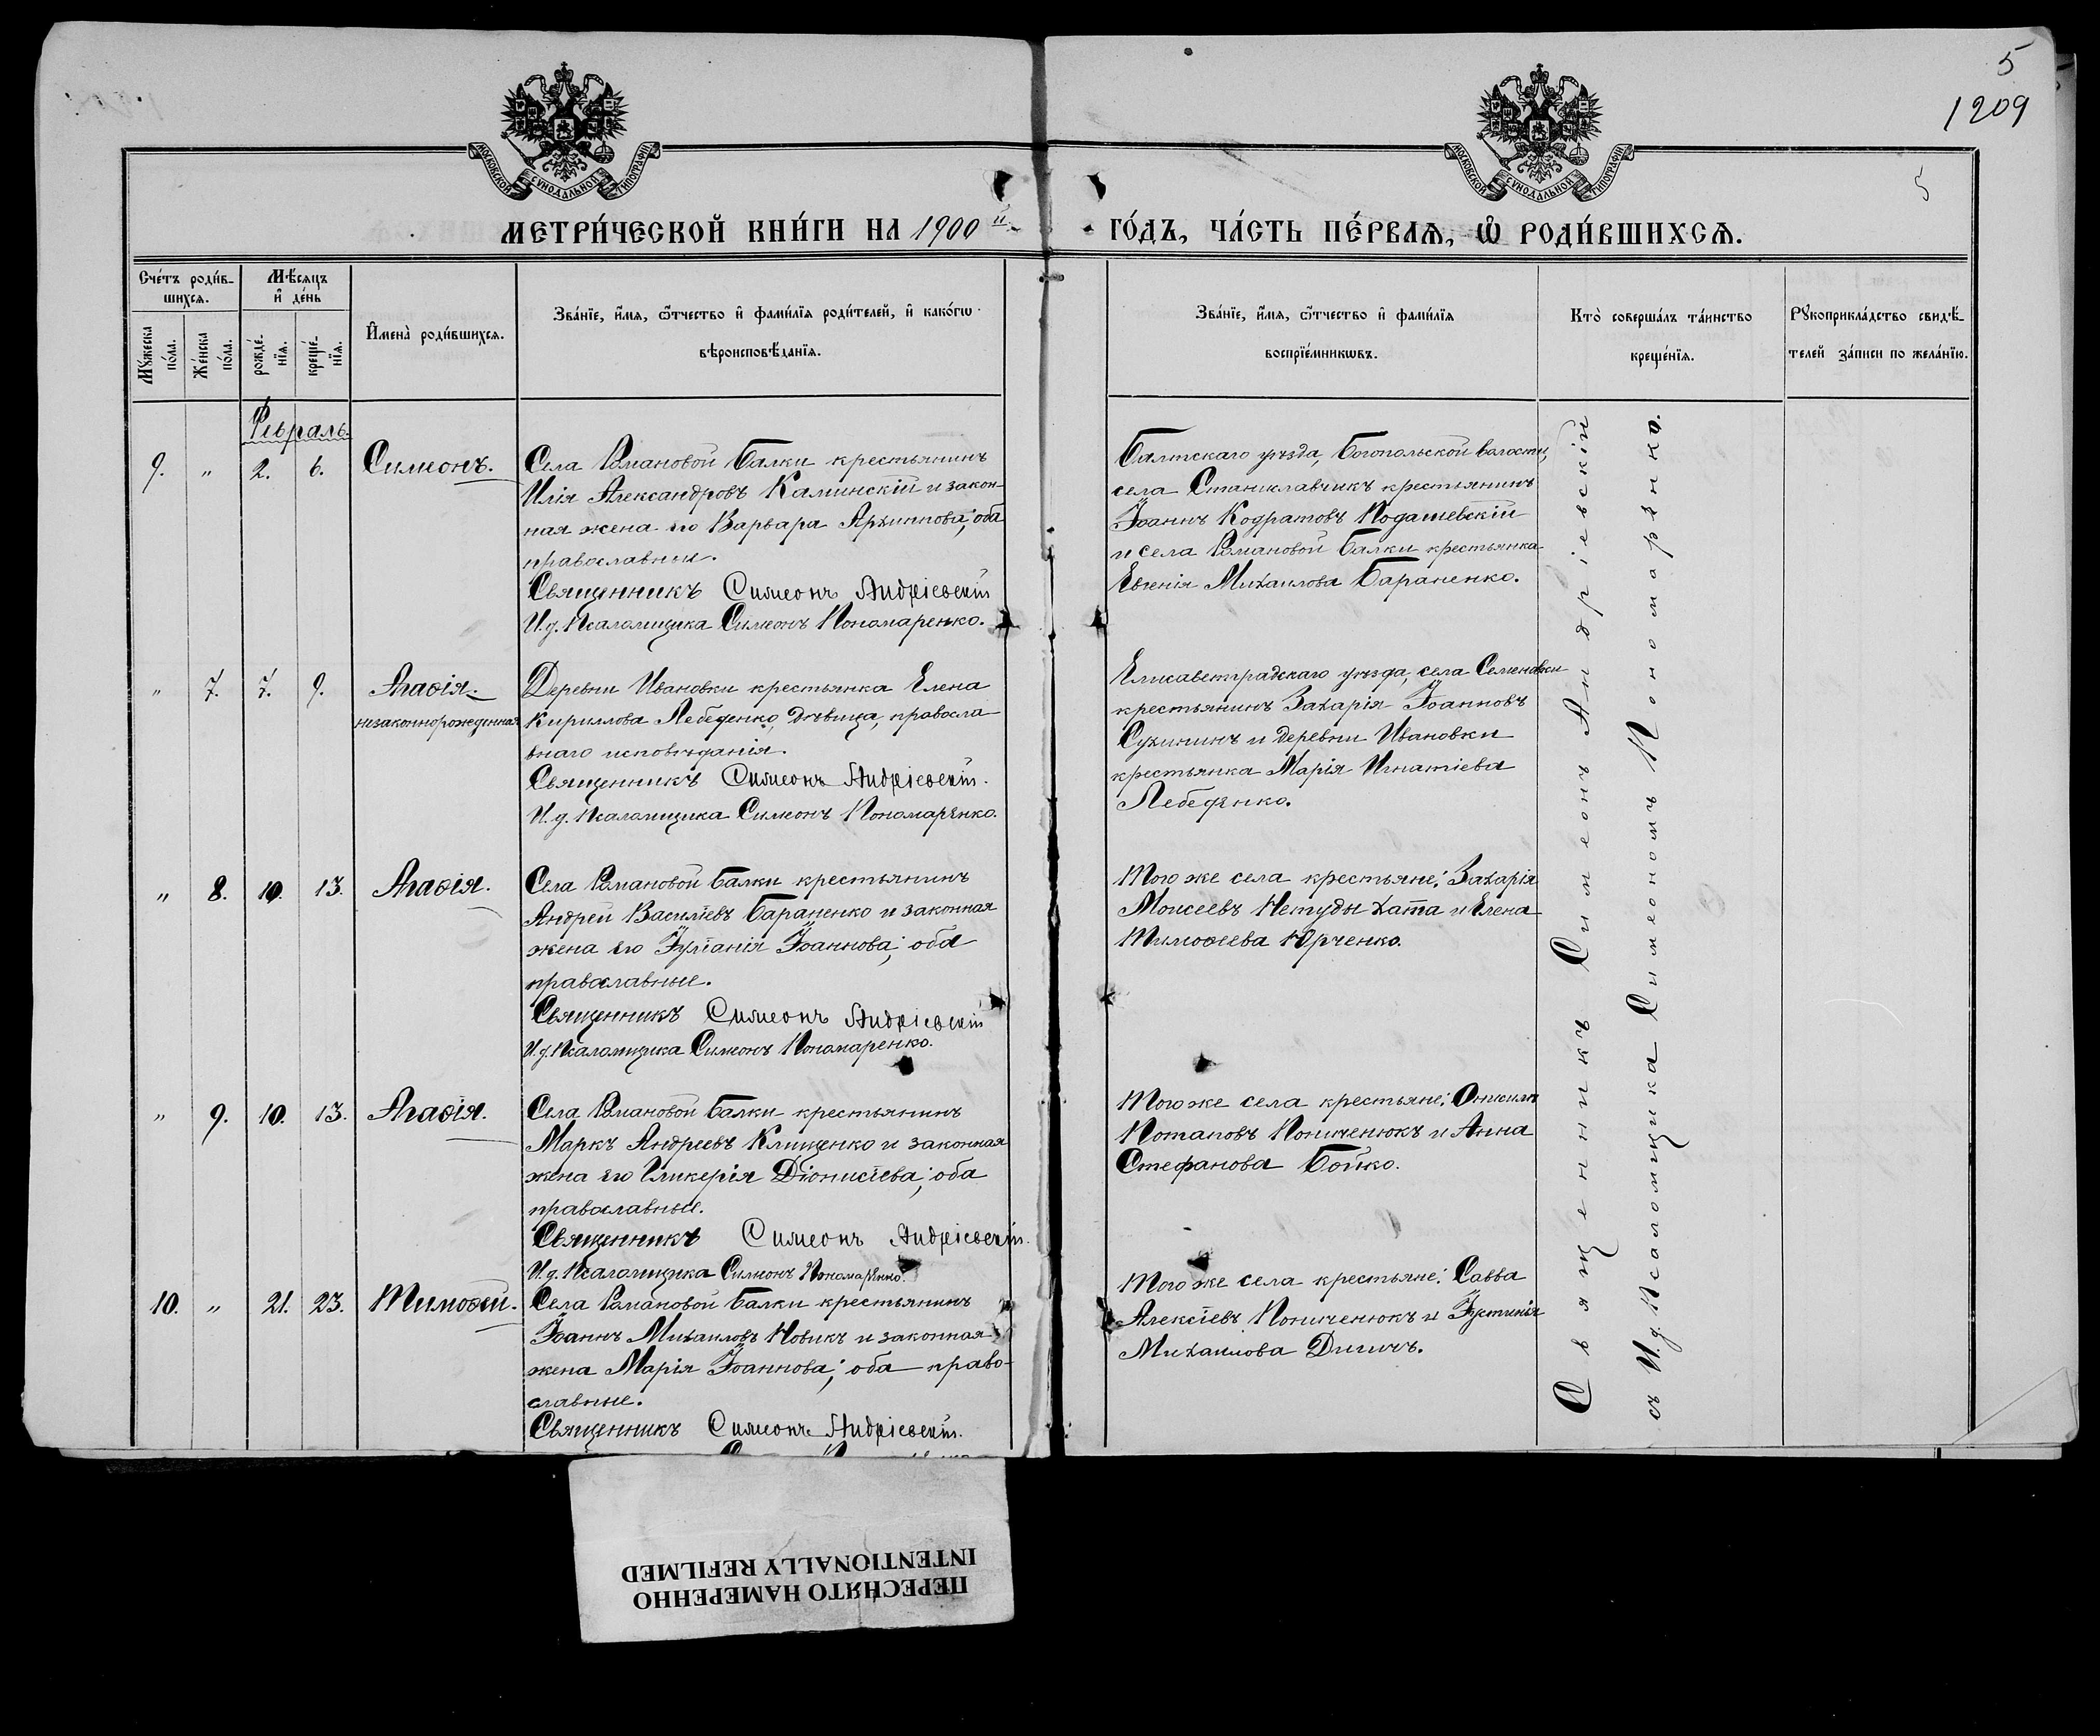 5
1209
5
МОСКОВСКОЙ СѴНОДАЛЬНОЙ ТИПОГРАФІИ
МОСКОВСКОЙ СѴНОДАЛЬНОЙ ТИПОГРАФІИ
МЕТРИ́ЧЕСКОЙ КНИ́ГИ НА 1900 й
ГО́ДЪ, ЧА́СТЬ ПЕ́РВАѦ, Ѽ РОДИ́ВШИХСѦ.
Сче́тъ роди́в-
шихсѧ.
Мѣ́сѧцъ
и҆ де́нь
Мꙋ́жеска
по́ла.
Же́нска
по́ла.
рожде́-
нїѧ.
креще́-
нїѧ.
И҆мена̀ роди́вшихсѧ.
Зва́нїе, и҆́мѧ, ѻ҆́тчество и҆ фами́лїѧ роди́телей, и҆ како́гѡ
вѣроисповѣ́данїѧ.
Зва́нїе, и҆́мѧ, ѻ҆́тчество и҆ фами́лїѧ
воспрїе́мникѡвъ.
Кто̀ соверша́лъ та́инство
креще́нїѧ.
Рꙋкоприкла́дство свидѣ́-
телей за́писи по жела́нїю.
Февраль.
9. " 2. 6. Симеонъ.
Села Романовой Балки крестьянинъ
Илія Александровъ Каминскій и закон-
ная жена его Варвара Архиппова; оба
православные.
Священникъ Симеонъ Андріевскій
И.д. Псаломщика Симеонъ Пономаренко.
Балтскаго уѣзда, Богопольской волости,
села Станиславчикъ крестьянинъ
Іоаннъ Кодратовъ Подашевскій
и села Романовой Балки крестьянка
Евгенія Михаилова Бараненко.
" 7. 7. 9. Агаѳія.
незаконнорожденная
Деревни Ивановки крестьянка Елена
Кириллова Лебеденко, дѣвица, правосла
внаго исповѣданія.
Священникъ Симеонъ Андріевскій.
И.д. Псаломщика Симеонъ Пономаренко.
Елисаветградскаго уѣзда, села Семеновки
крестьянинъ Захарія Іоанновъ
Сухининъ и деревни Ивановки
крестьянка Марія Игнатіева
Лебеденко.
" 8. 10. 13. Агаѳія.
Села Романовой Балки крестьянинъ
Андрей Василіевъ Бараненко и законная
жена его Іуліанія Іоаннова; оба
православные.
Священникъ Симеонъ Андріевскій
И.д. Псаломщика Симеонъ Пономаренко.
Того же села крестьяне: Захарія
Моисеевъ Нетуды Хата и Елена
Тимоѳеева Юрченко.
" 9. 10. 13. Агаѳія.
Села Романовой Балки крестьянинъ
Маркъ Андреевъ Клищенко и законная
жена его Гликерія Діонисіева; оба
православные.
Священникъ Симеонъ Андріевскій.
И.д. Псаломщика Симеонъ Пономаренко.
Того же села крестьяне:
Потаповъ Пониченюкъ и Анна
Стефанова Бойко.
10. " 21. 23. Тимоѳей.
Села Романовой Балки крестьянинъ
Іоаннъ Михаиловъ Новикъ и законная
жена Марія Іоаннова; оба право-
славные.
Священникъ Симеонъ Андріевскій.
Того же села крестьяне: Савва
Алексіевъ Пониченюкъ и Іустинія
Михаилова
Священникъ Симеонъ Андріевскій
съ И.д. Псаломщика Симеономъ Пономаренко.
ПЕРЕСНЯТО НАМЕРЕННО
INTENTIONALLY REFILMED